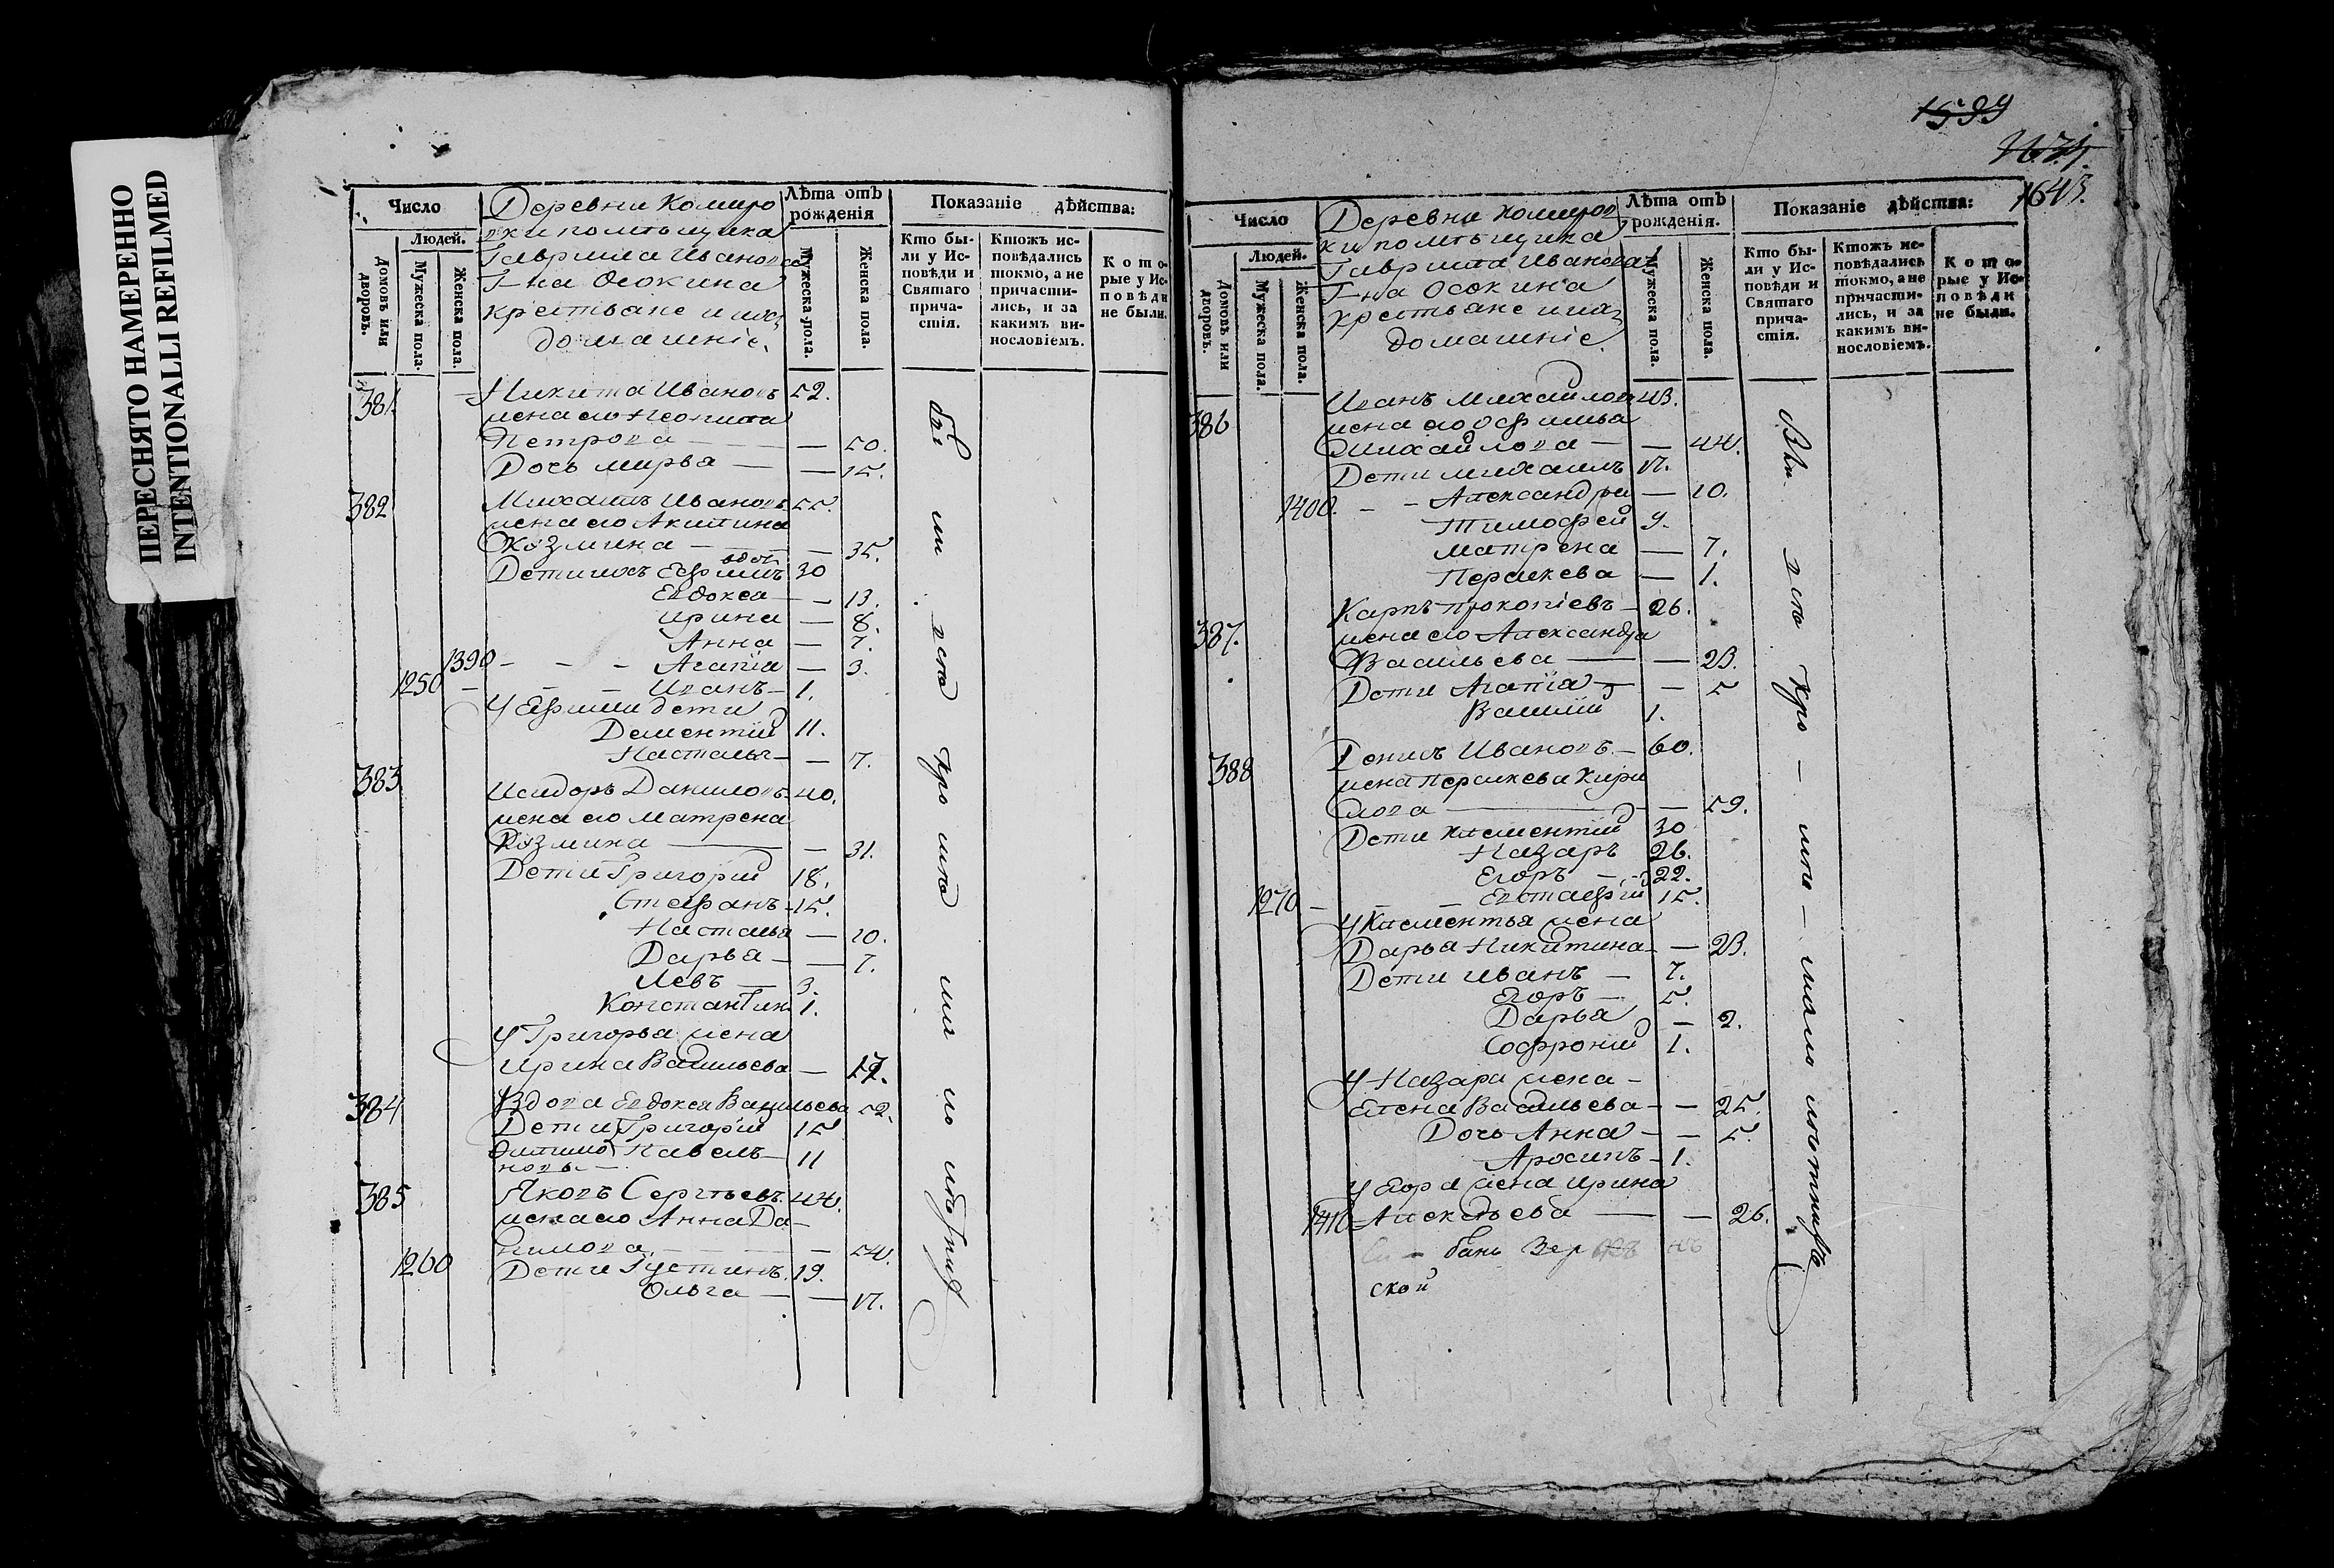 ПЕРЕСНЯТО НАМЕРЕННО
INTENTIONALLI REFILMED
Число
Людей.
Домовъ или дворовъ.
Мужеска пола.
Женска пола.
Деревни Комиро
вки помѣщика
Гаврила Иванова
Г-на Осокина
крестьяне и ихъ
домашніе.
Лѣта отъ рожденія
Мужеска пола.
Женска пола.
Показаніе дѣйства:
Кто бы-
ли у Ис-
повѣди и
Святаго
прича-
стія.
Ктожъ ис-
повѣдались
токмо, а не
причасти-
лись, и за
какимъ ви-
нословіемъ.
Кото-
рые у Ис-
повѣди
не были.
381 Никита Ивановъ 52.
жена его Неонила
Петрова — 50.
Дочь Марья — 15.
382 Михаилъ Ивановъ 55.
жена его Акилина
Козмина — 35.
вдов
Дети ихъ Ефимъ 30
Евдокея — 13.
Ирина — 8.
Анна — 7.
1390 — Агапіа — 3.
1250 — Иванъ — 1.
У Ефима дети
Дементій 11.
Насталья — 7.
383 Исидоръ Даниловъ 40.
жена его Матрена
Козмина — 31.
Дети Григорій 18.
Стефанъ 15.
Насталья — 10.
Дарья — 7.
Левъ — 3.
Константин 1.
У Григорья жена
Ирина Васильева — 17.
384 Вдова Евдокея Васильева 52.
Дети Григорій 15
Павелъ — 11
385 Яковъ Сергѣевъ 44.
жена его Анна Да-
нилова — 54.
1260 Дети Густинъ 19.
Ольга — 17.
1599
1643.
Число
Людей.
Домовъ или дворовъ.
Мужеска пола.
Женска пола.
Деревни Комиров
ки помѣщика
Гаврила Иванова
Г-на Осокина
крестьяне и ихъ
домашніе.
Лѣта отъ рожденія.
Мужеска пола.
Женска пола.
Показаніе дѣйства:
Кто бы-
ли у Ис-
повѣди и
Святаго
прича-
стія.
Ктожъ ис-
повѣдались
токмо, а не
причасти-
лись, и за
какимъ ви-
нословіемъ.
Кото-
рые у Ис-
повѣди
не были.
386 Иванъ Михайловъ 43.
жена его Офимья
Михайлова — 44.
Дети Михаилъ 17.
1400. — Александра — 10.
Тимофей 9.
Матрена — 7.
Перакева — 1.
387. Карпъ Прокопіевъ — 26.
жена его Александра
Васильева — 23.
Дети Агапіа — 5
Василій 1.
388 Денисъ Ивановъ — 60.
жена Перакева Кири
лова — 59.
Дети Климентій 30
Назаръ 26.
Егоръ — 22.
1270 — Евстафій 15.
У Климентья жена
Дарья Никитина — 23.
Дети Иванъ — 7.
Егоръ — 5.
Дарья — 2.
Софроній 1.
У Назара жена —
Елена Васильева — 25.
Дочь Анна — 5.
Архипъ — 1.
У Егора жена Ирина
1410 Алексѣева — 26.
бань Зер
ской